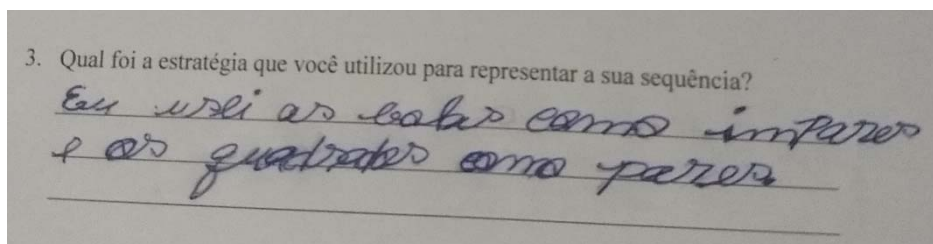 3. Qual foi a estratégia que você utilizou para representar a sua sequência?
Eu usei as bolas como impares
e os quadrados como pares